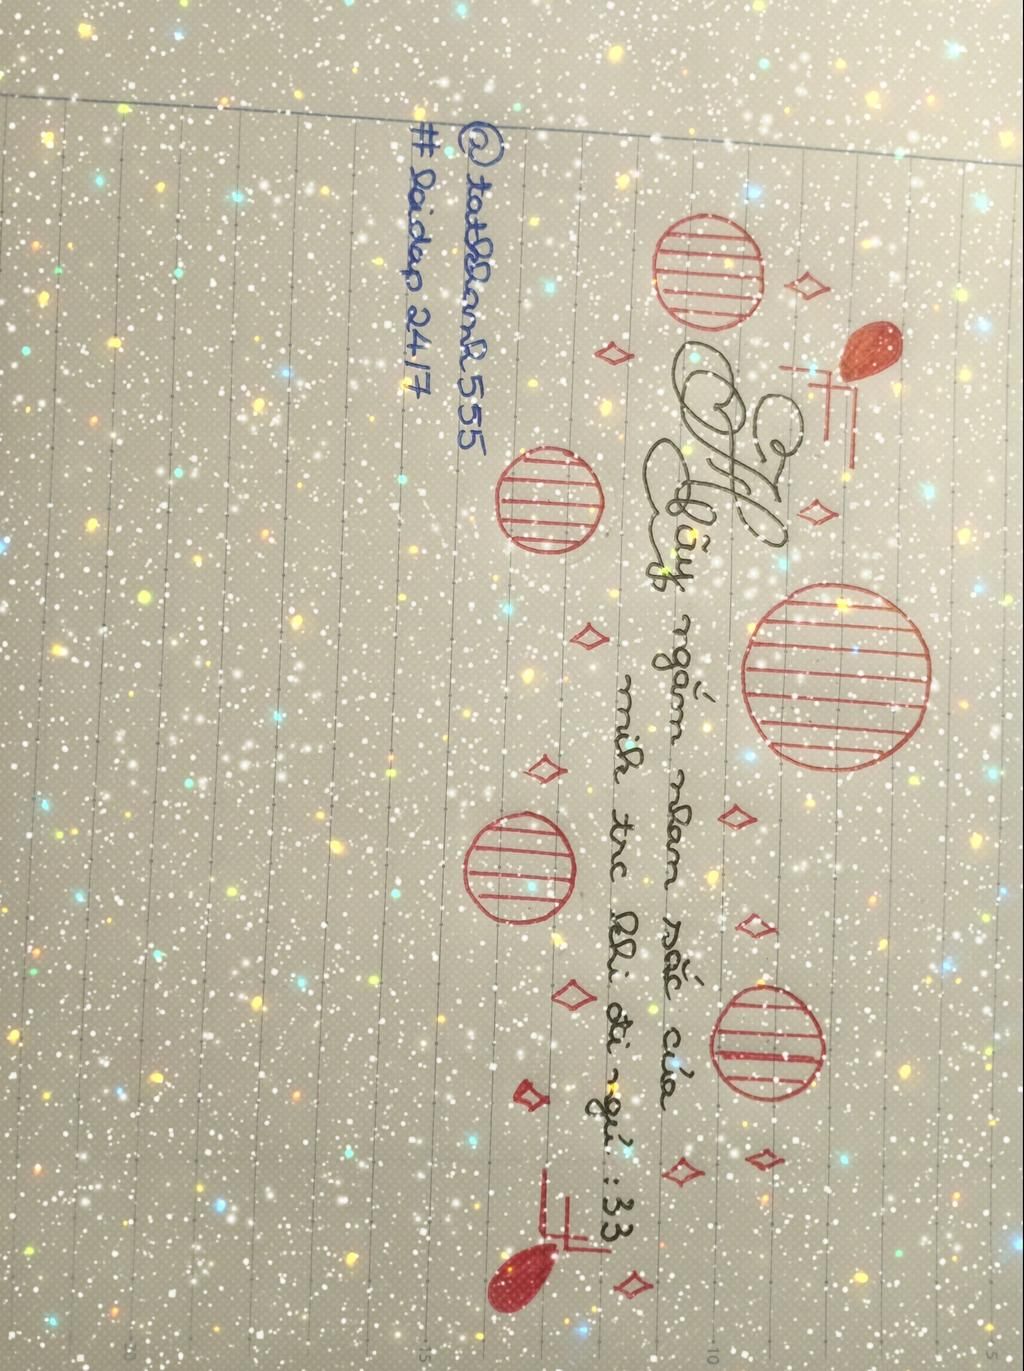 Hãy ngắm nhan sắc của
mih trc khi đi ngủ :33
@tatkhanh555
#laidap 24/7
5
10
15
20